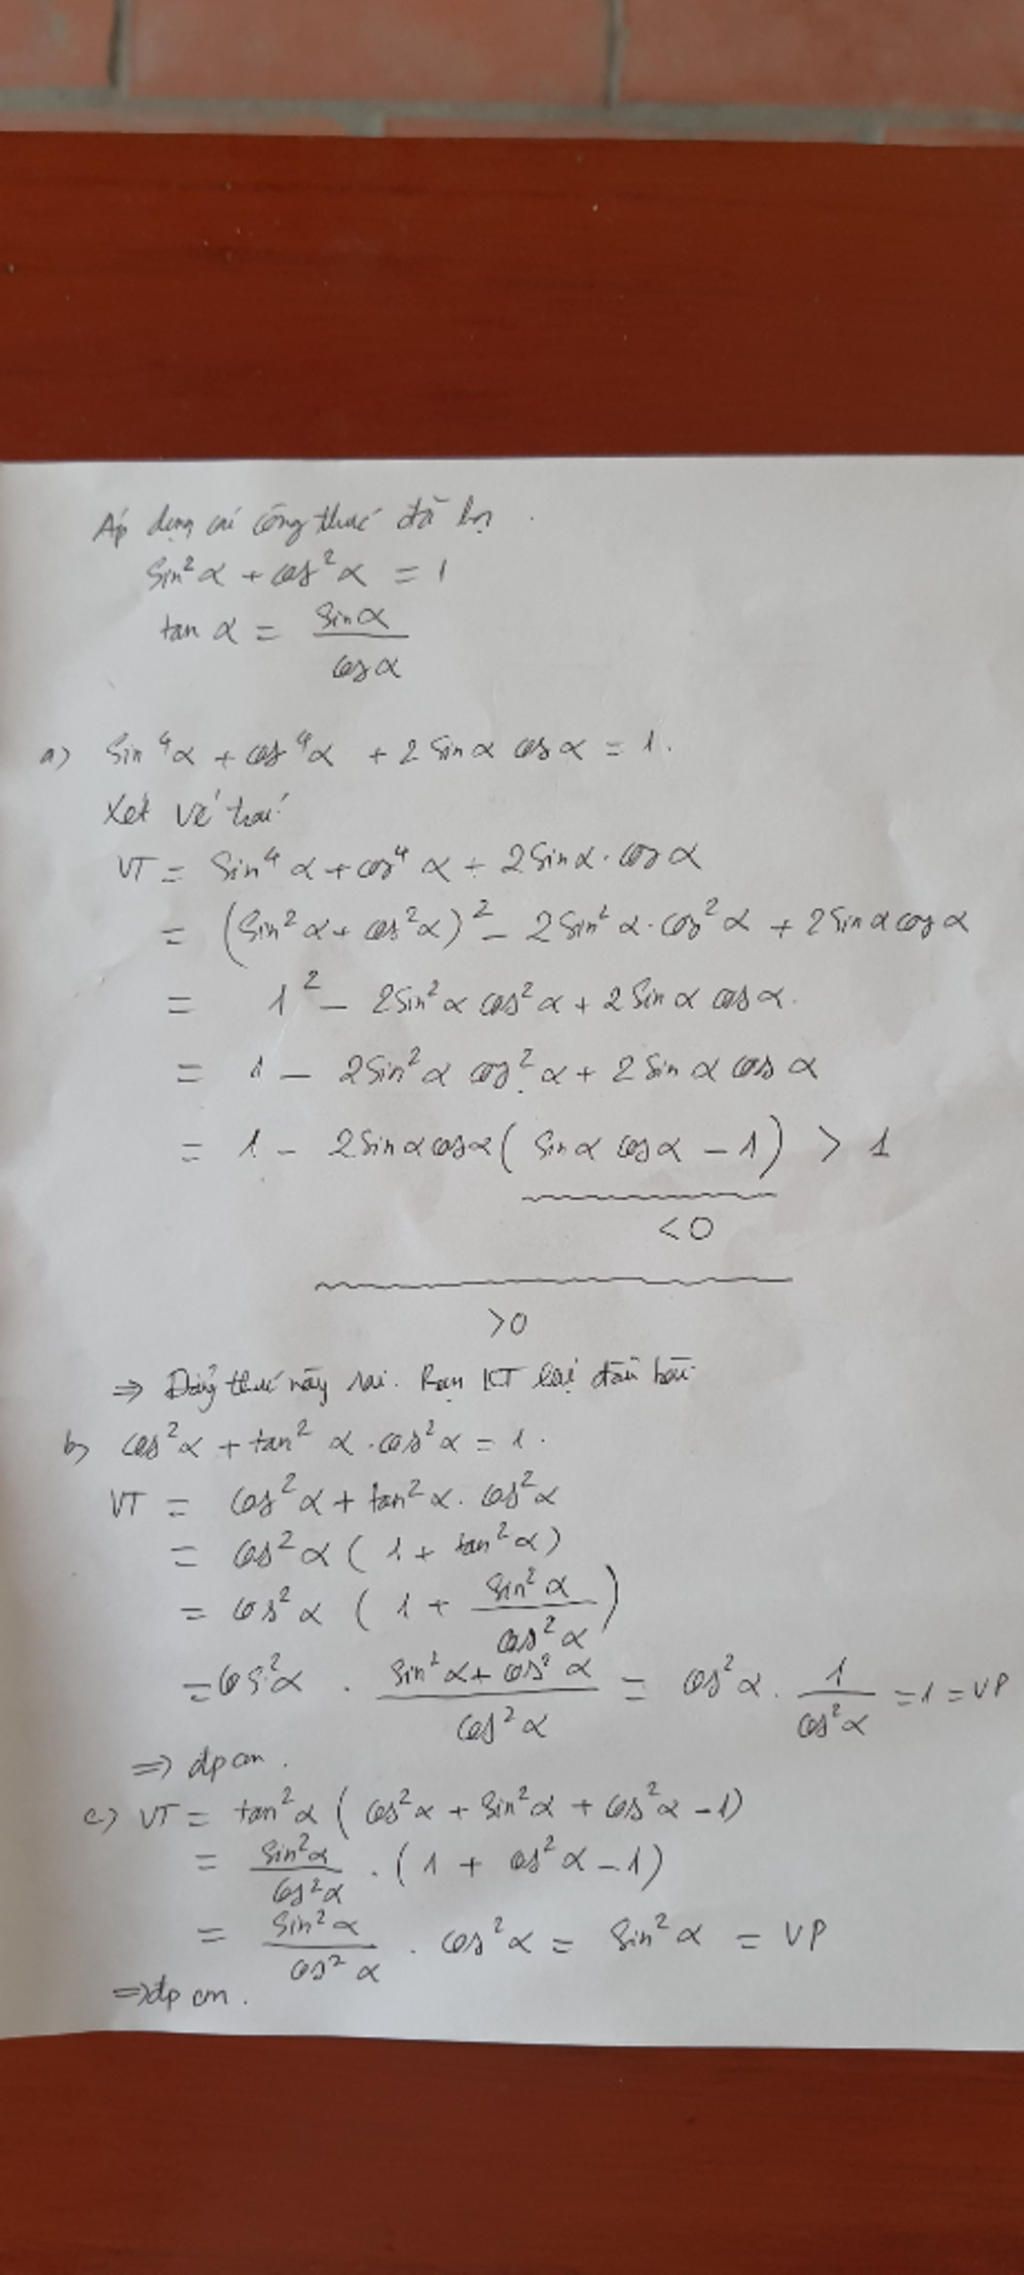 Áp dụng các công thức đã học.
sin²α + cos²α = 1
tan α = sinα / cosα
a) sin⁴α + cos⁴α + 2 sinα cosα = 1.
Xét vế trái
VT = sin⁴α + cos⁴α + 2sinα.cosα
= (sin²α + cos²α)² - 2sin²α.cos²α + 2sinαcosα
= 1² - 2sin²α cos²α + 2sinα cosα.
= 1 - 2sin²α cos²α + 2sinα cosα
= 1 - 2sinαcosα(sinα cosα - 1) > 1
<0
>0
⇒ Đẳng thức này sai. Bạn KT lại đầu bài
b) cos²α + tan²α.cos²α = 1.
VT = cos²α + tan²α.cos²α
= cos²α(1 + tan²α)
= cos²α(1 + sin²α / cos²α)
= cos²α . (sin²α + cos²α) / cos²α = cos²α . 1 / cos²α = 1 = VP
⇒ đpcm.
c) VT = tan²α(cos²α + sin²α + cos²α - 1)
= sin²α / cos²α . (1 + cos²α - 1)
= sin²α / cos²α . cos²α = sin²α = VP
⇒ đpcm.